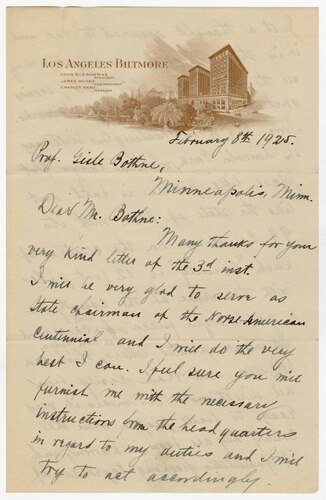 LOS ANGELES BILTMORE
JOHN McE. BOWMAN
PRESIDENT
JAMES WOODS
VICE-PRESIDENT
CHARLES BAAD
MANAGER
February 8th 1925.
Prof. Gisle Bothne,
Minneapolis, Minn.
Dear Mr. Bothne:
Many thanks for your
very kind letter of the 3rd inst.
I will be very glad to serve as
State chairman of the Norse-American
Centennial and I will do the very
best I can. I feel sure you will
furnish me with the necessary
instructions from the headquarters
in regard to my duties and I will
try to act accordingly.